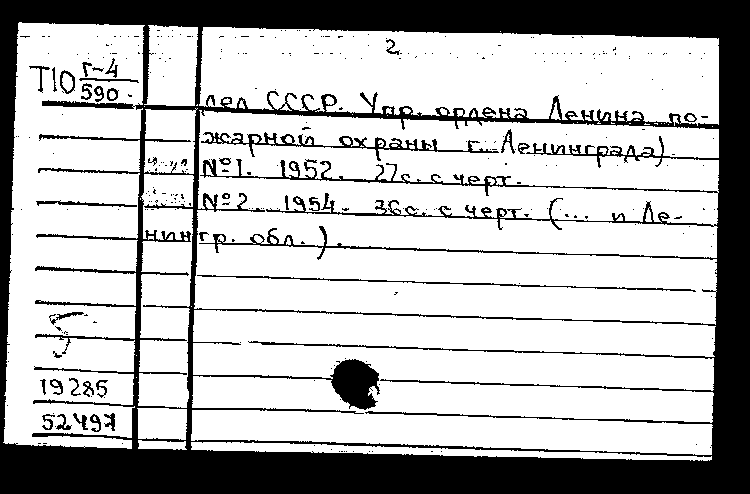 2
Т10 г-4
590.
дел СССР. Упр. ордена Ленина по-
жарной охраны г. Ленинграда)
№1. 1952. 27с. с черт.
№2 1954. 36с. с черт. (... и Ле-
нингр. обл.).
5
19285
52497